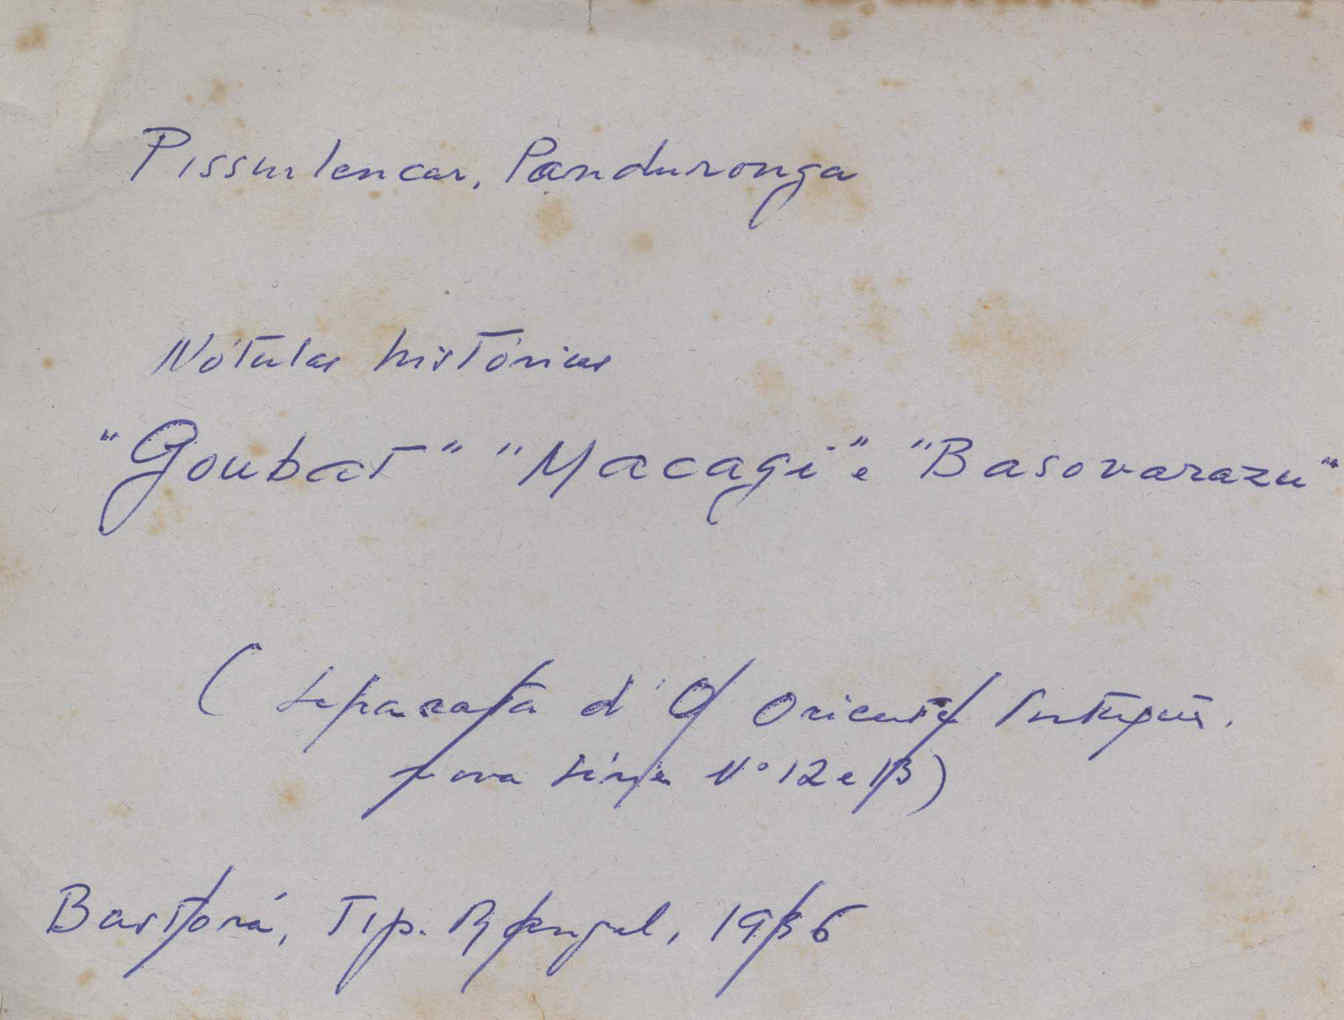 Pissurlencar, Panduronga
Nótulas históricas
"Goubat" "Macagi" e "Basovarazu"
(Separata d'O Oriente Português.
nova série Nº 12 e 13)
Bastorá, Tip. Rangel, 1936